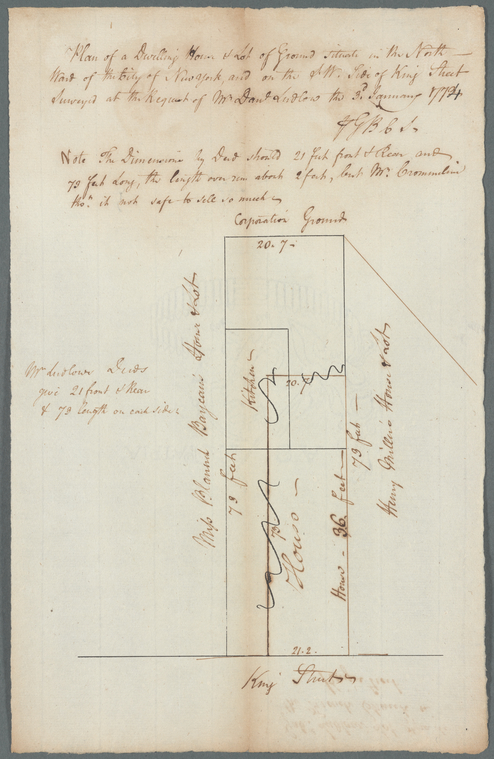 Plan of a Dwelling House & Lot of Ground situate in the North
Ward of the City of New York and on the Side of King Street
Surveyed at the Request of Mr Danl Ludlow the 3d January 1794
Note The Dimensions by Deed should 21 feet front & Rear and
73 feet Long, the length over run about 2 feet, but Mr. Crommelin
tho't it not safe to sell so much
Corporation Ground
20. 7
Kitchen
20.
Mr Ludlows Deeds
give 21 front & Rear
& 73 length on each side
Miss House & Lot
73 feet
House
House - 36 feet
73 feet
Henry Millers House & Lot
21. 2
King Street